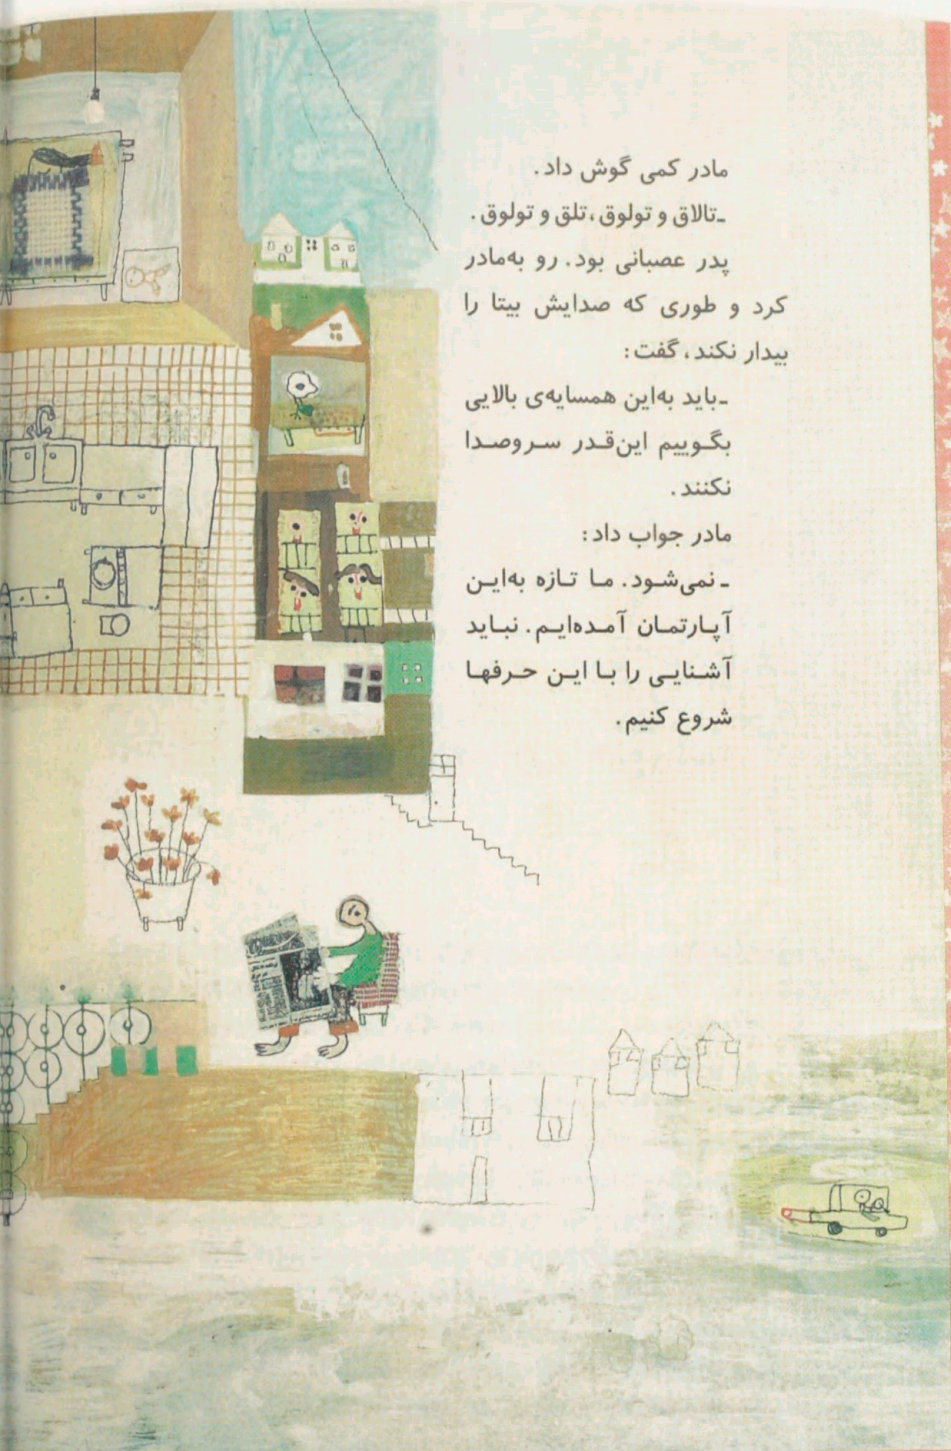 مادر کمی گوش داد.
ـتالاق و تولوق، تلق و تولوق.
پدر عصبانی بود. رو به‌مادر
کرد و طوری که صدایش بیتا را
بیدار نکند، گفت:
ـباید به‌این همسایه‌ی بالایی
بگوییم این‌قدر سروصدا
نکنند.
مادر جواب داد:
ـ نمی‌شود. ما تازه به‌این
آپارتمان آمده‌ایم. نباید
آشنایی را با این حرفها
شروع کنیم.